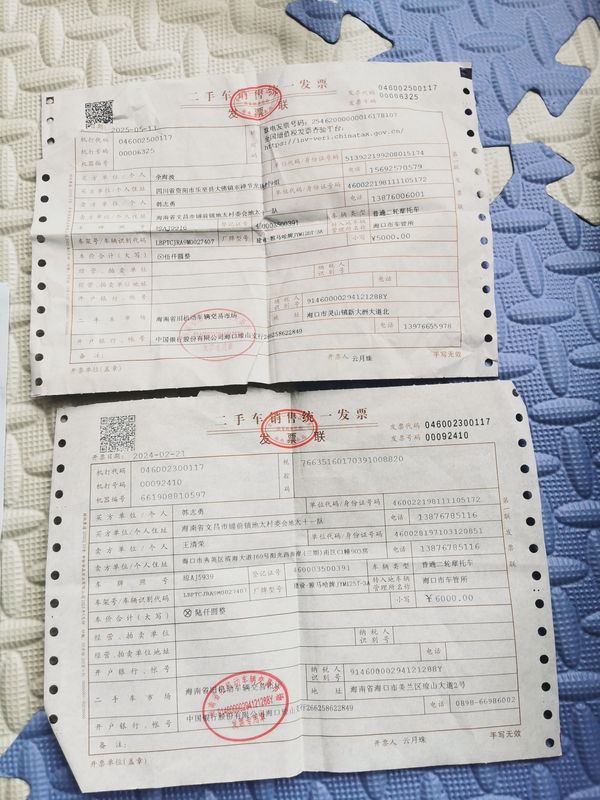 二手车销售统一发票
发票联
发票代码 046002500117
发票号码 00006325
开票日期: 2025-05-11
机打代码 046002500117
机打号码 00006325
机器编号
https://inv-veri.chinatax.gov.cn/
买方单位/个人 余海波
单位代码/身份证号码 513922199208015174
买方单位/个人住址
电话 15692570579
卖方单位/个人 韩志勇
单位代码/身份证号码 460022198111105172
卖方单位/个人住址 海南省文昌市铺前镇地太村委会地太十一队
电话 13876006001
车牌照号 琼AJ5939
登记证号 460003500391
车辆类型 普通二轮摩托车
车架号/车辆识别代码 LBPTCJRA9M0027407
厂牌型号
转入地车辆管理所名称 海口市车管所
车价合计(大写) ⊗伍仟圆整
小写 ¥5000.00
经营、拍卖单位
经营、拍卖单位地址
纳税人识别号
开户银行、帐号
电话
二手车市场 海南省旧机动车辆交易市场
纳税人识别号 91460000294121288Y
地址 海口市灵山镇新大洲大道北
开户银行、帐号 中国银行股份有限公司海口琼山支行266258622849
电话 13976655978
备注:
开票单位(盖章)
开票人 云月珠
手写无效
二手车销售统一发票
发票联
发票代码 046002300117
发票号码 00092410
开票日期: 2024-02-21
机打代码 046002300117
机打号码 00092410
机器编号 661908810597
税控码 76635160170391008820
买方单位/个人 韩志勇
单位代码/身份证号码 460022198111105172
买方单位/个人住址 海南省文昌市铺前镇地太村委会地太十一队
电话 13876785116
卖方单位/个人 王清荣
单位代码/身份证号码 460028197103120851
卖方单位/个人住址
电话 13876785116
车牌照号 琼AJ5939
登记证号 460003500391
车辆类型 普通二轮摩托车
车架号/车辆识别代码 LBPTCJRA9M0027407
厂牌型号 建设·雅马哈牌JYM125T-3A
转入地车辆管理所名称 海口市车管所
车价合计(大写) ⊗陆仟圆整
小写 ¥6000.00
经营、拍卖单位
经营、拍卖单位地址
纳税人识别号
开户银行、帐号
电话
二手车市场 海南省旧机动车辆交易市场
纳税人识别号 91460000294121288Y
地址 海南省海口市美兰区琼山大道2号
开户银行、帐号 中国银行股份有限公司海口琼山支行266258622849
电话 0898-66986002
备注:
开票单位(盖章)
开票人 云月珠
手写无效